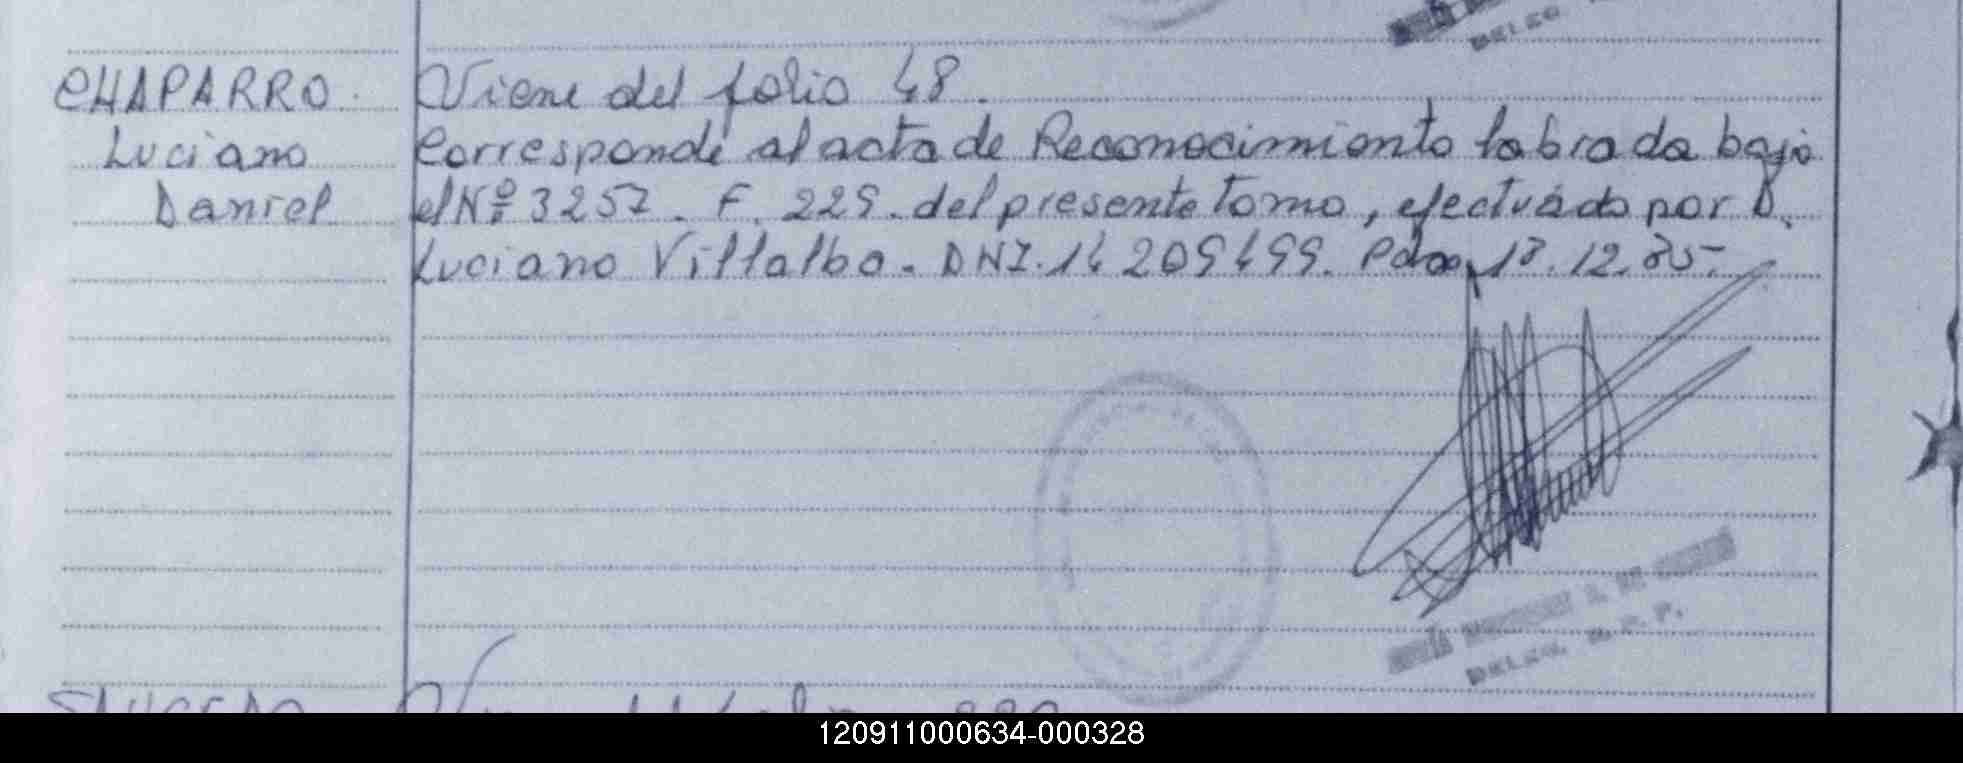 CHAPARRO
Luciano
Daniel
Viene del folio 48.
Corresponde al acta de Reconocimiento labrada bajo
el Nº 3257. F. 229. del presente tomo, efectuado por D.
Luciano Villalba. DNI. 14 209499. Pdas, .12.85-
DELEG. R.P.
DELEG.
120911000634-000328